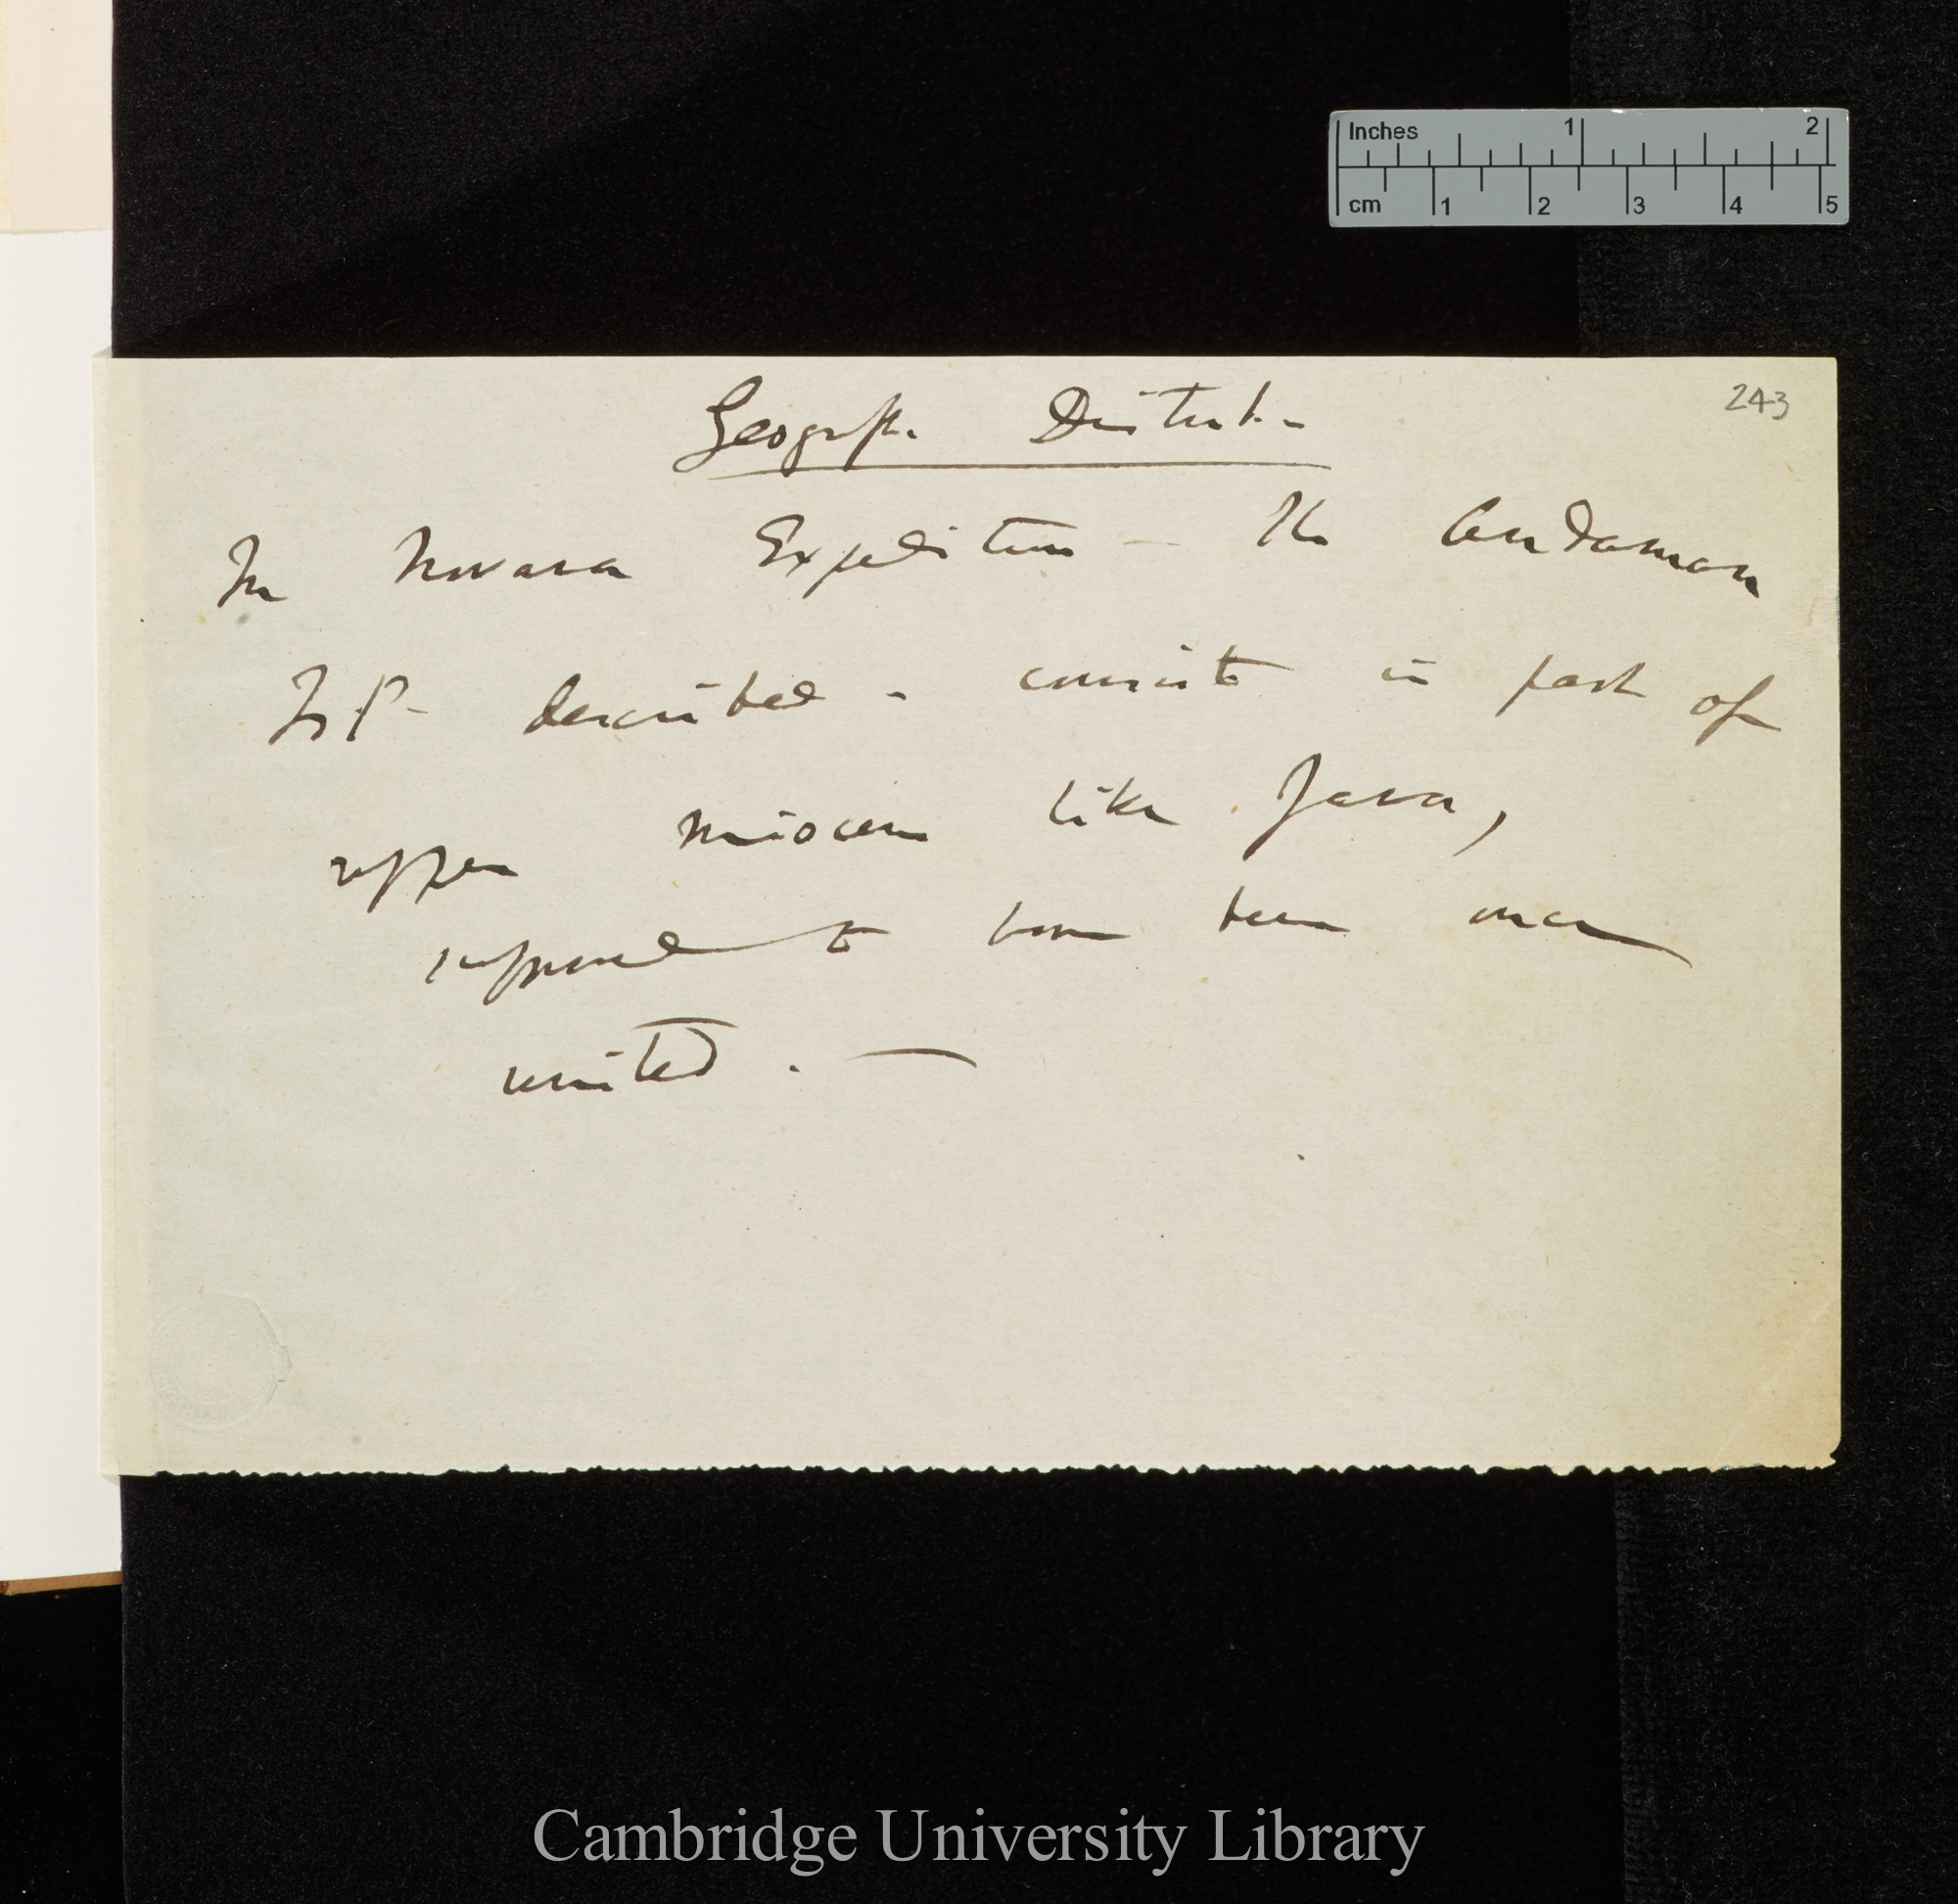 Inches 1 2
cm 1 2 3 4 5
243
Geograph. Distrib.-
In Novara Expedition — the Andaman
Isd- described - consists in part of
upper miocene like Java,
supposed to have been once
united. —
Cambridge University Library